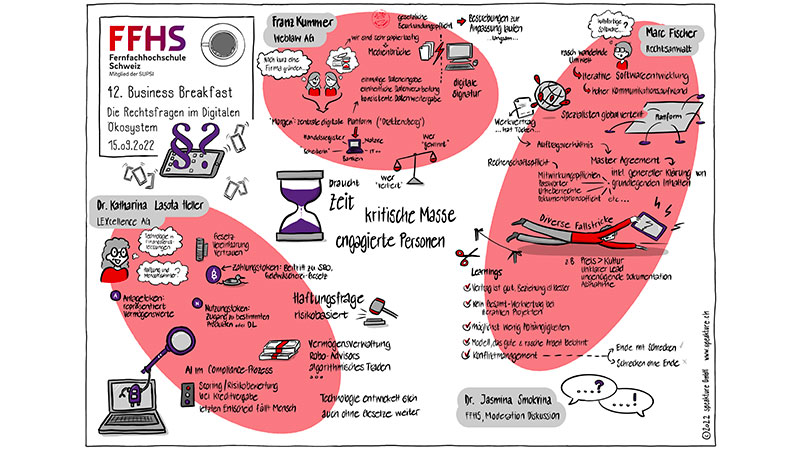 FFHS
Fernfachhochschule
Schweiz
Mitglied der SUPSI
42. Business Breakfast
Die Rechtsfragen im Digitalen
Ökosystem
15.09.2022
Franz Kummer
Weblaw AG
Noch kurz eine
Firma gründen...
wir sind sehr papierlastig
Medienbrüche
gesetzliche
Beurkundungspflicht
Bestrebungen zur
Anpassung laufen
...langsam...
digitale
Signatur
einmalige Dateneingabe
einheitliche Datenverarbeitung
konsistente Datenweitergabe
"Morgen": zentrale digitale Plattform
Handelsregister
Notare
Banken
IT
wer
"gewinnt"
wer
"verliert"
Marc Fischer
Rechtsanwalt
Software...
rasch wandelnde
Umwelt
Iterative Softwareentwicklung
hoher Kommunikationsaufwand
Spezialisten global verteilt
Plattform
Werkvertrag
...hat Tücken...
Auftragsverhältnis
Rechenschaftspflicht
Master Agreement
Mitwirkungspflichten
Passwörter
Urheberrechte
Dokumentationspflicht
inkl genereller Klärung von
grundlegenden Inhalten
etc...
Diverse Fallstricke
z.B
Preis > Kultur
unklarer Lead
ungenügende Dokumentation
Abnahme
Learnings
Vertrag ist gut, Beziehung ist besser
Kein Gesamt-Werkvertrag bei
iterativen Projekten
möglichst wenig Abhängigkeiten
Modell, das gute & rasche Arbeit belohnt
Konfliktmanagement
Ende mit Schrecken
Schrecken ohne Ende
Braucht
Zeit
kritische Masse
engagierte Personen
Dr. Katharina Lasota Heller
LEXcellence AG
Technologie in
Finanzdienst-
leistungen
Haftung und
Verantwortung?
Gesetz-
Überführung
vertrauen
Zahlungstoken: Beitritt zu SRO,
Geldwäscherei-Gesetz
A
Anlagetoken:
repräsentiert
Vermögenswerte
N
Nutzungstoken:
Zugang zu bestimmten
Produkten oder DL
Haftungsfrage
risikobasiert
Vermögensverwaltung
Robo-Advisors
algorithmisches Traden
...
AI im Compliance-Prozess
Scoring/Risikobewertung
bei Kreditvergabe
letzten Entscheid fällt Mensch
Technologie entwickelt sich
auch ohne Gesetze weiter
Dr. Jasmina Smokvina
FFHS, Moderation Diskussion
...?
...!
©2022 speaklare GmbH www.speaklare.ch